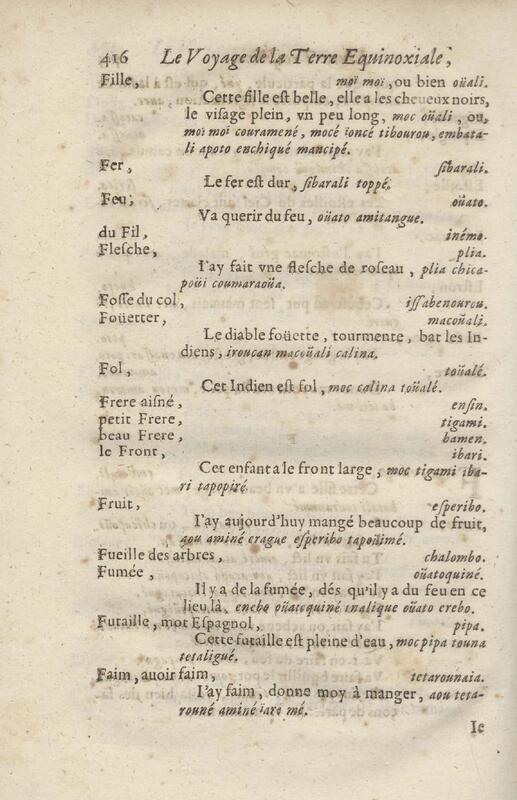 416 Le Voyage de la Terre Equinoxiale,
Fille, moï moï, ou bien oüali.
Cette fille est belle, elle a les cheueux noirs,
le visage plein, vn peu long, moc oüali, ou,
moï moï couramené, mocé ïoncé tibourou, embata-
li apoto enchiqué mancipé.
Fer, sibarali.
Le fer est dur, sibarali toppé.
Feu, oüato.
Va querir du feu, oüato amitangue.
du Fil, inémo.
Flesche, plia.
I'ay fait vne flesche de roseau, plia chica-
poüi coumaraoüa.
Fosse du col, issabenourou.
Foüetter, macoüali.
Le diable foüette, tourmente, bat les In-
diens, iroucan macoüali calina.
Fol, toüalé.
Cet Indien est fol, moc calina toüalé.
Frere aisné, ensin.
petit Frere, tigami.
beau Frere, bamen.
le Front, ibari.
Cet enfant a le front large, moc tigami iba-
ri tapopiré.
Fruit, esperibo.
I'ay aujourd'huy mangé beaucoup de fruit,
aou aminé crague esperibo tapoüimé.
Fueille des arbres, chalombo.
Fumée, oüatoquiné.
Il y a de la fumée, dés qu'il y a du feu en ce
lieu là, enebo oüatoquiné inalique oüato erebo.
Futaille, mot Espagnol, pipa.
Cette futaille est pleine d'eau, moc pipa touna
tetaligué.
Faim, auoir faim, tetarounaia.
I'ay faim, donne moy à manger, aou teta-
rouné aminé ïare mé.
Ie